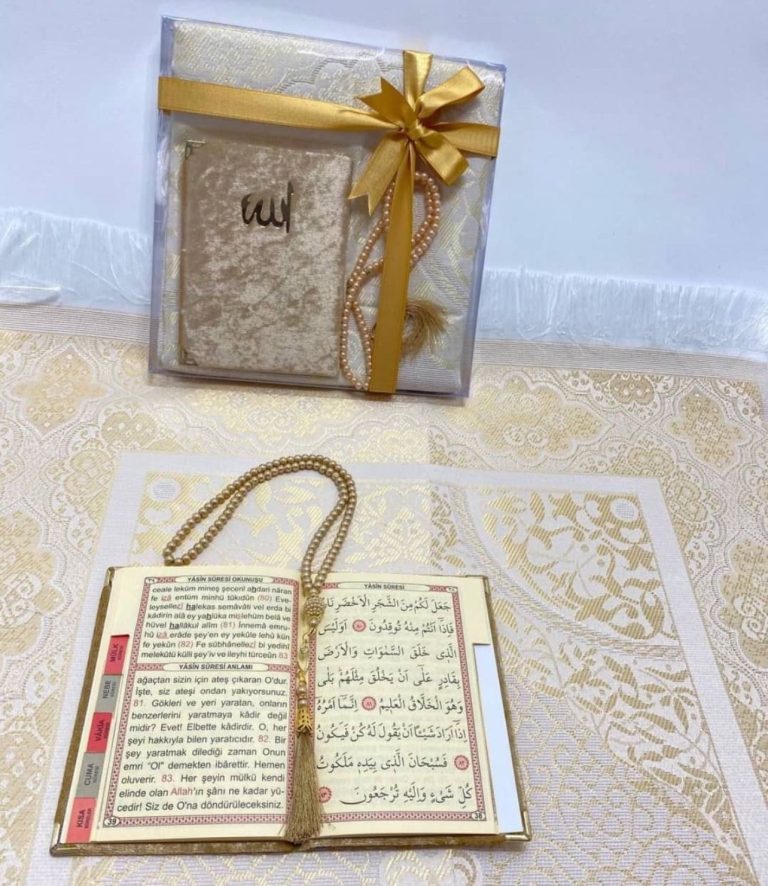 الله
YÂSÎN SÛRESİ OKUNUŞU
ceale leküm mineş şecenil ahdari nâran
fe izâ entüm minhü tûkidûn (80) Eve-
leysellezî halekas semâvâti vel erda bi
kâdirin alâ ey yahlüka mislehüm belâ ve
hüvel hallâkul alîm (81) İnnemâ emru-
hû izâ erâde şey'en ey yekûle lehû kün
fe yekûn (82) Fe sübhânellezî bi yedihî
melekûtü külli şey'iv ve ileyhi türceûn 83
YÂSÎN SÛRESİ ANLAMI
ağaçtan sizin için ateş çıkaran O'dur.
İşte, siz ateşi ondan yakıyorsunuz.
81. Gökleri ve yeri yaratan, onların
benzerlerini yaratmaya kâdir değil
midir? Evet! Elbette kâdirdir. O, her
şeyi hakkıyla bilen yaratıcıdır. 82. Bir
şey yaratmak dilediği zaman Onun
emri "Ol" demekten ibârettir. Hemen
oluverir. 83. Her şeyin mülkü kendi
elinde olan Allah'ın şânı ne kadar yü-
cedir! Siz de O'na döndürüleceksiniz.
39
MÜLK
NEBE
VÂKIA
CUMA
KISA
YÂSÎN SÛRESİ
جَعَلَ لَكُمْ مِنَ الشَّجَرِ الْاَخْضَرِ نَارًا
فَاِذَٓا اَنْتُمْ مِنْهُ تُوقِدُونَ ﴿٨٠﴾ اَوَلَيْسَ
الَّذ۪ي خَلَقَ السَّمٰوَاتِ وَالْاَرْضَ
بِقَادِرٍ عَلٰٓى اَنْ يَخْلُقَ مِثْلَهُمْ بَلٰى
وَهُوَ الْخَلَّاقُ الْعَل۪يمُ ﴿٨١﴾ اِنَّمَٓا اَمْرُهُٓ
اِذَٓا اَرَادَ شَيْـًٔا اَنْ يَقُولَ لَهُ كُنْ فَيَكُونُ
﴿٨٢﴾ فَسُبْحَانَ الَّذ۪ي بِيَدِه۪ مَلَكُوتُ
كُلِّ شَيْءٍ وَاِلَيْهِ تُرْجَعُونَ ﴿٨٣﴾
38